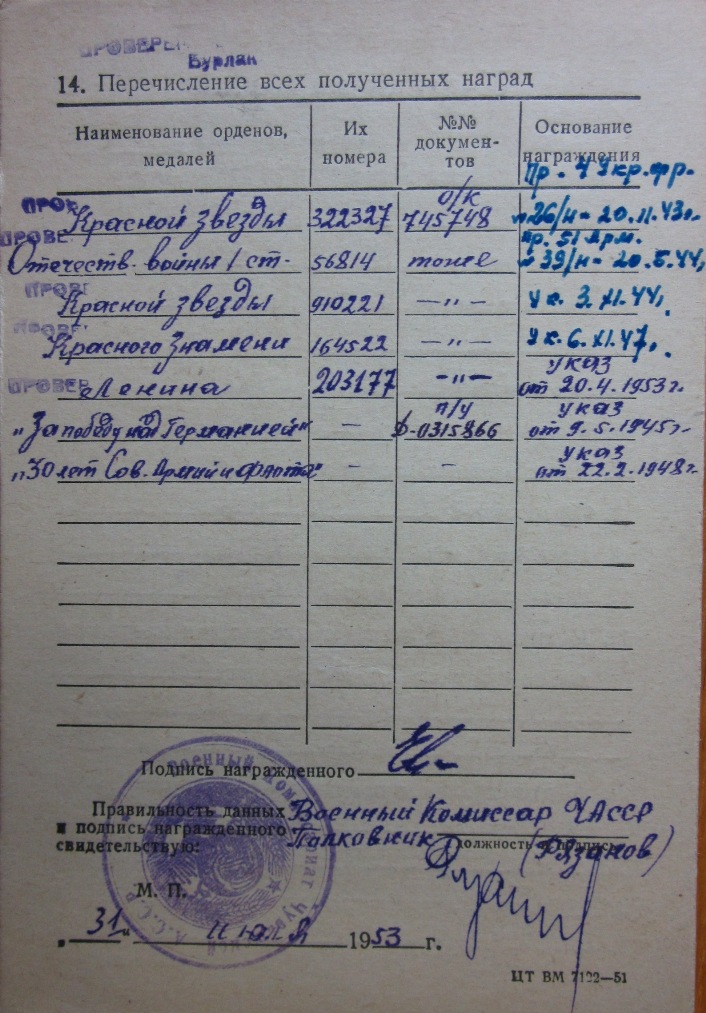 ПРОВЕРЕ
Бурлан
14. Перечисление всех полученных наград
Наименование орденов, медалей
Их номера
№№ докумен-тов
Основание награждения
Пр. 4 Укр. фр.
ПРОВ
о/к
Красной звезды 322327 745748 № 26/н - 20.11.43г.
ПРОВЕ
Пр. 51 Арм.
Отечеств. войны 1 ст. 56814 тоже № 39/н - 20.5.44,
ПРОВЕ
Красной звезды 910221 —"— Ук. 3.XI.44,
ПРОВЕ
Красного Знамени 164522 —"— Ук. 6.XI.47,
указ
ПРОВЕР
Ленина 203177 —"— от 20.4.1953г.
п/у указ
„За победу над Германией" — 0315866 от 9.5.1945г.
указ
„30 лет Сов. Армии и флота" — — от 22.2.1948г.
Подпись награжденного
Правильность данных Военный Комиссар ЧАССР
и подпись награжденного Полковник (Рязанов)
свидетельствую: должность и подпись
М. П.
„31" июля 1953 г.
ЦТ ВМ 7122—51